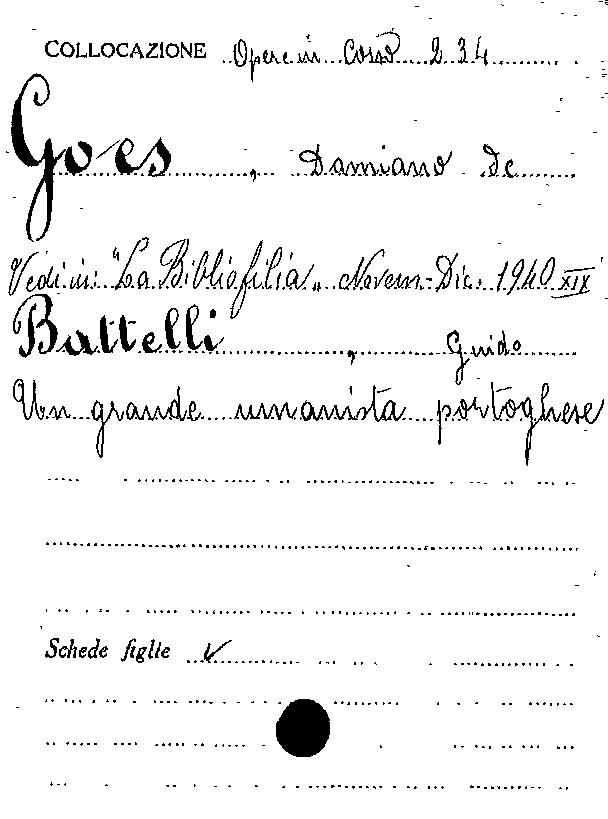 COLLOCAZIONE Opere in Corso 234
Goes, Damiano De
Vedi in: "La Bibliofilia" Novem-Dic. 1940 XIX
Battelli, Guido
Un grande umanista portoghese
Schede figlie ✓